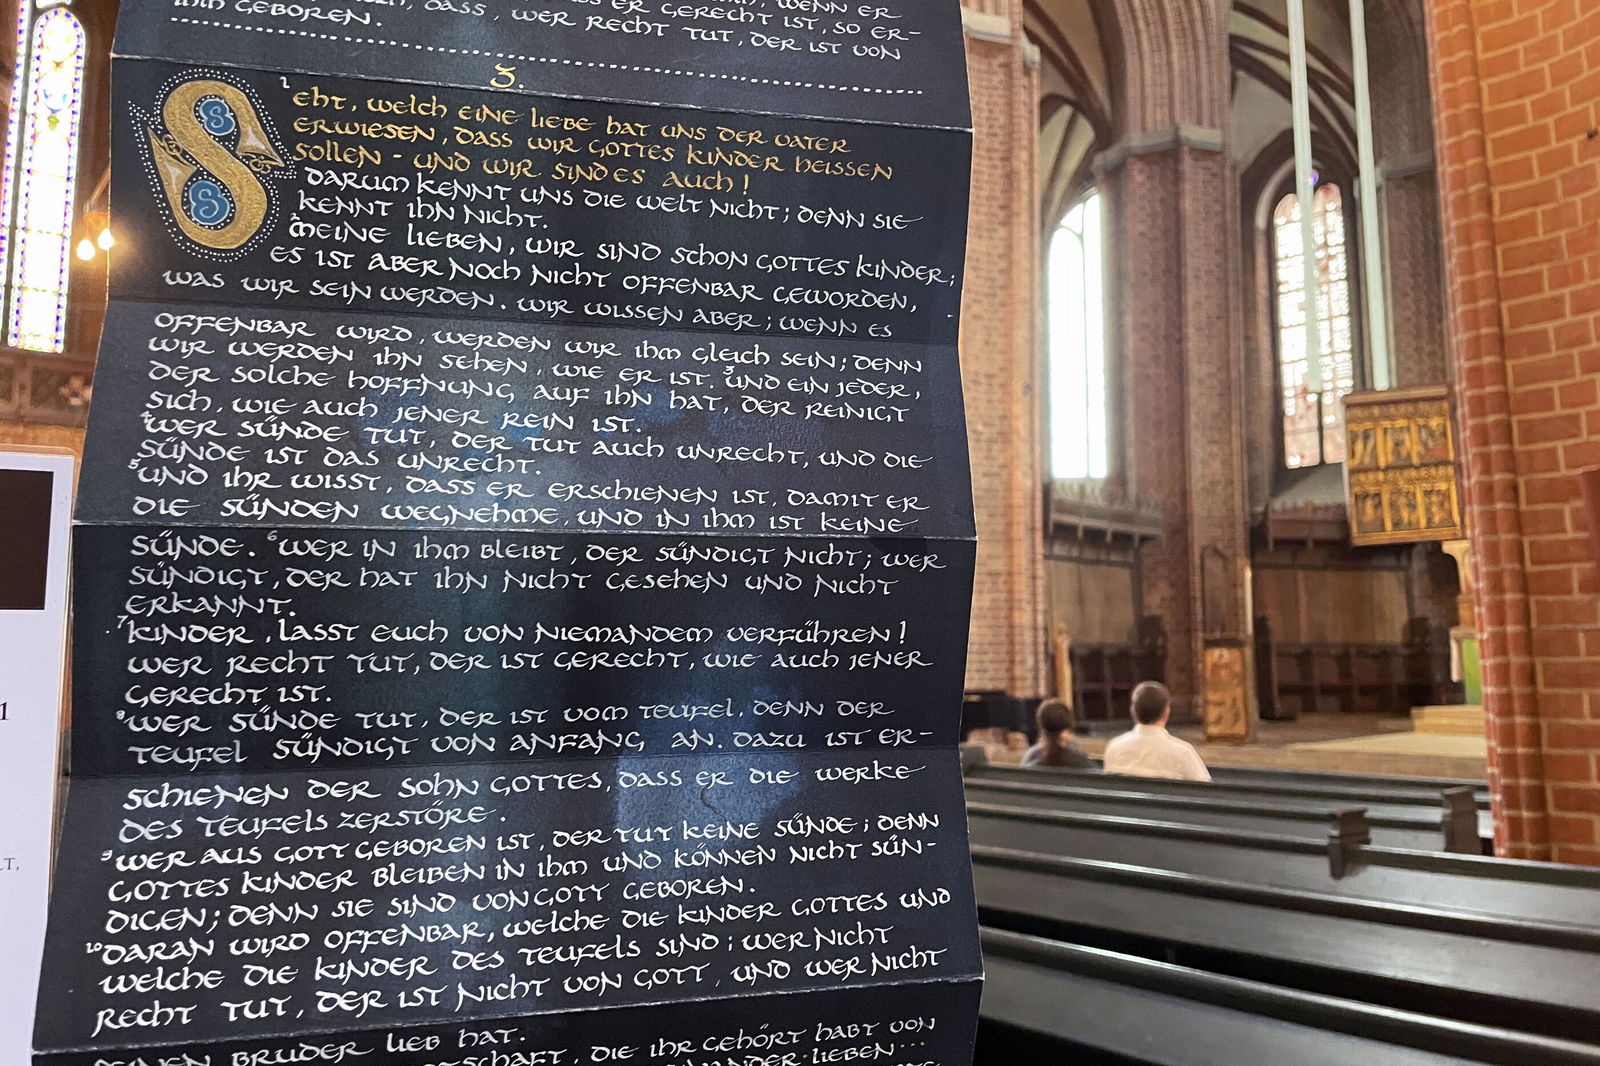 WENN ER
ER GERECHT IST, SO ER-
DASS, WER RECHT TUT, DER IST VON
IHM GEBOREN.
3.
1 SEHT, WELCH EINE LIEBE HAT UNS DER VATER
ERWIESEN, DASS WIR GOTTES KINDER HEISSEN
SOLLEN - UND WIR SIND ES AUCH!
DARUM KENNT UNS DIE WELT NICHT; DENN SIE
KENNT IHN NICHT.
2 MEINE LIEBEN, WIR SIND SCHON GOTTES KINDER;
ES IST ABER NOCH NICHT OFFENBAR GEWORDEN,
WAS WIR SEIN WERDEN. WIR WISSEN ABER; WENN ES
OFFENBAR WIRD, WERDEN WIR IHM GLEICH SEIN; DENN
WIR WERDEN IHN SEHEN, WIE ER IST. 3 UND EIN JEDER,
DER SOLCHE HOFFNUNG AUF IHN HAT, DER REINIGT
SICH, WIE AUCH JENER REIN IST.
4 WER SÜNDE TUT, DER TUT AUCH UNRECHT, UND DIE
SÜNDE IST DAS UNRECHT.
5 UND IHR WISST, DASS ER ERSCHIENEN IST, DAMIT ER
DIE SÜNDEN WEGNEHME, UND IN IHM IST KEINE
SÜNDE. 6 WER IN IHM BLEIBT, DER SÜNDIGT NICHT; WER
SÜNDIGT, DER HAT IHN NICHT GESEHEN UND NICHT
ERKANNT.
7 KINDER, LASST EUCH VON NIEMANDEM VERFÜHREN!
WER RECHT TUT, DER IST GERECHT, WIE AUCH JENER
GERECHT IST.
8 WER SÜNDE TUT, DER IST VOM TEUFEL, DENN DER
TEUFEL SÜNDIGT VON ANFANG AN. DAZU IST ER-
SCHIENEN DER SOHN GOTTES, DASS ER DIE WERKE
DES TEUFELS ZERSTÖRE.
9 WER AUS GOTT GEBOREN IST, DER TUT KEINE SÜNDE; DENN
GOTTES KINDER BLEIBEN IN IHM UND KÖNNEN NICHT SÜN-
DIGEN; DENN SIE SIND VON GOTT GEBOREN.
10 DARAN WIRD OFFENBAR, WELCHE DIE KINDER GOTTES UND
WELCHE DIE KINDER DES TEUFELS SIND: WER NICHT
RECHT TUT, DER IST NICHT VON GOTT, UND WER NICHT
SEINEN BRUDER LIEB HAT.
DIE IHR GEHÖRT HABT VON
LIEBEN